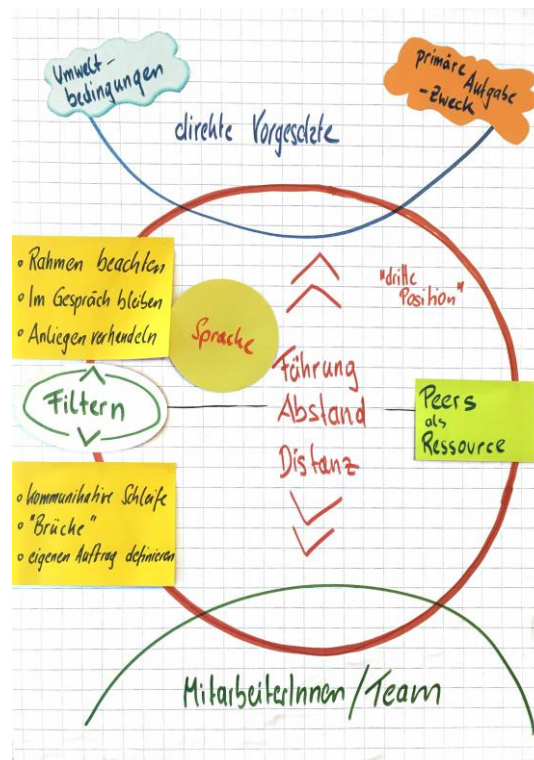 Umwelt-
bedingungen
primäre
Aufgabe
-Zweck
direkte Vorgesetzte
• Rahmen beachten
• Im Gespräch bleiben
• Anliegen verhandeln
Sprache
"dritte
Position"
Filtern
Führung
Abstand
Distanz
Peers
als
Ressource
• kommunikative Schleife
• "Brücke"
• eigenen Auftrag definieren
MitarbeiterInnen/Team